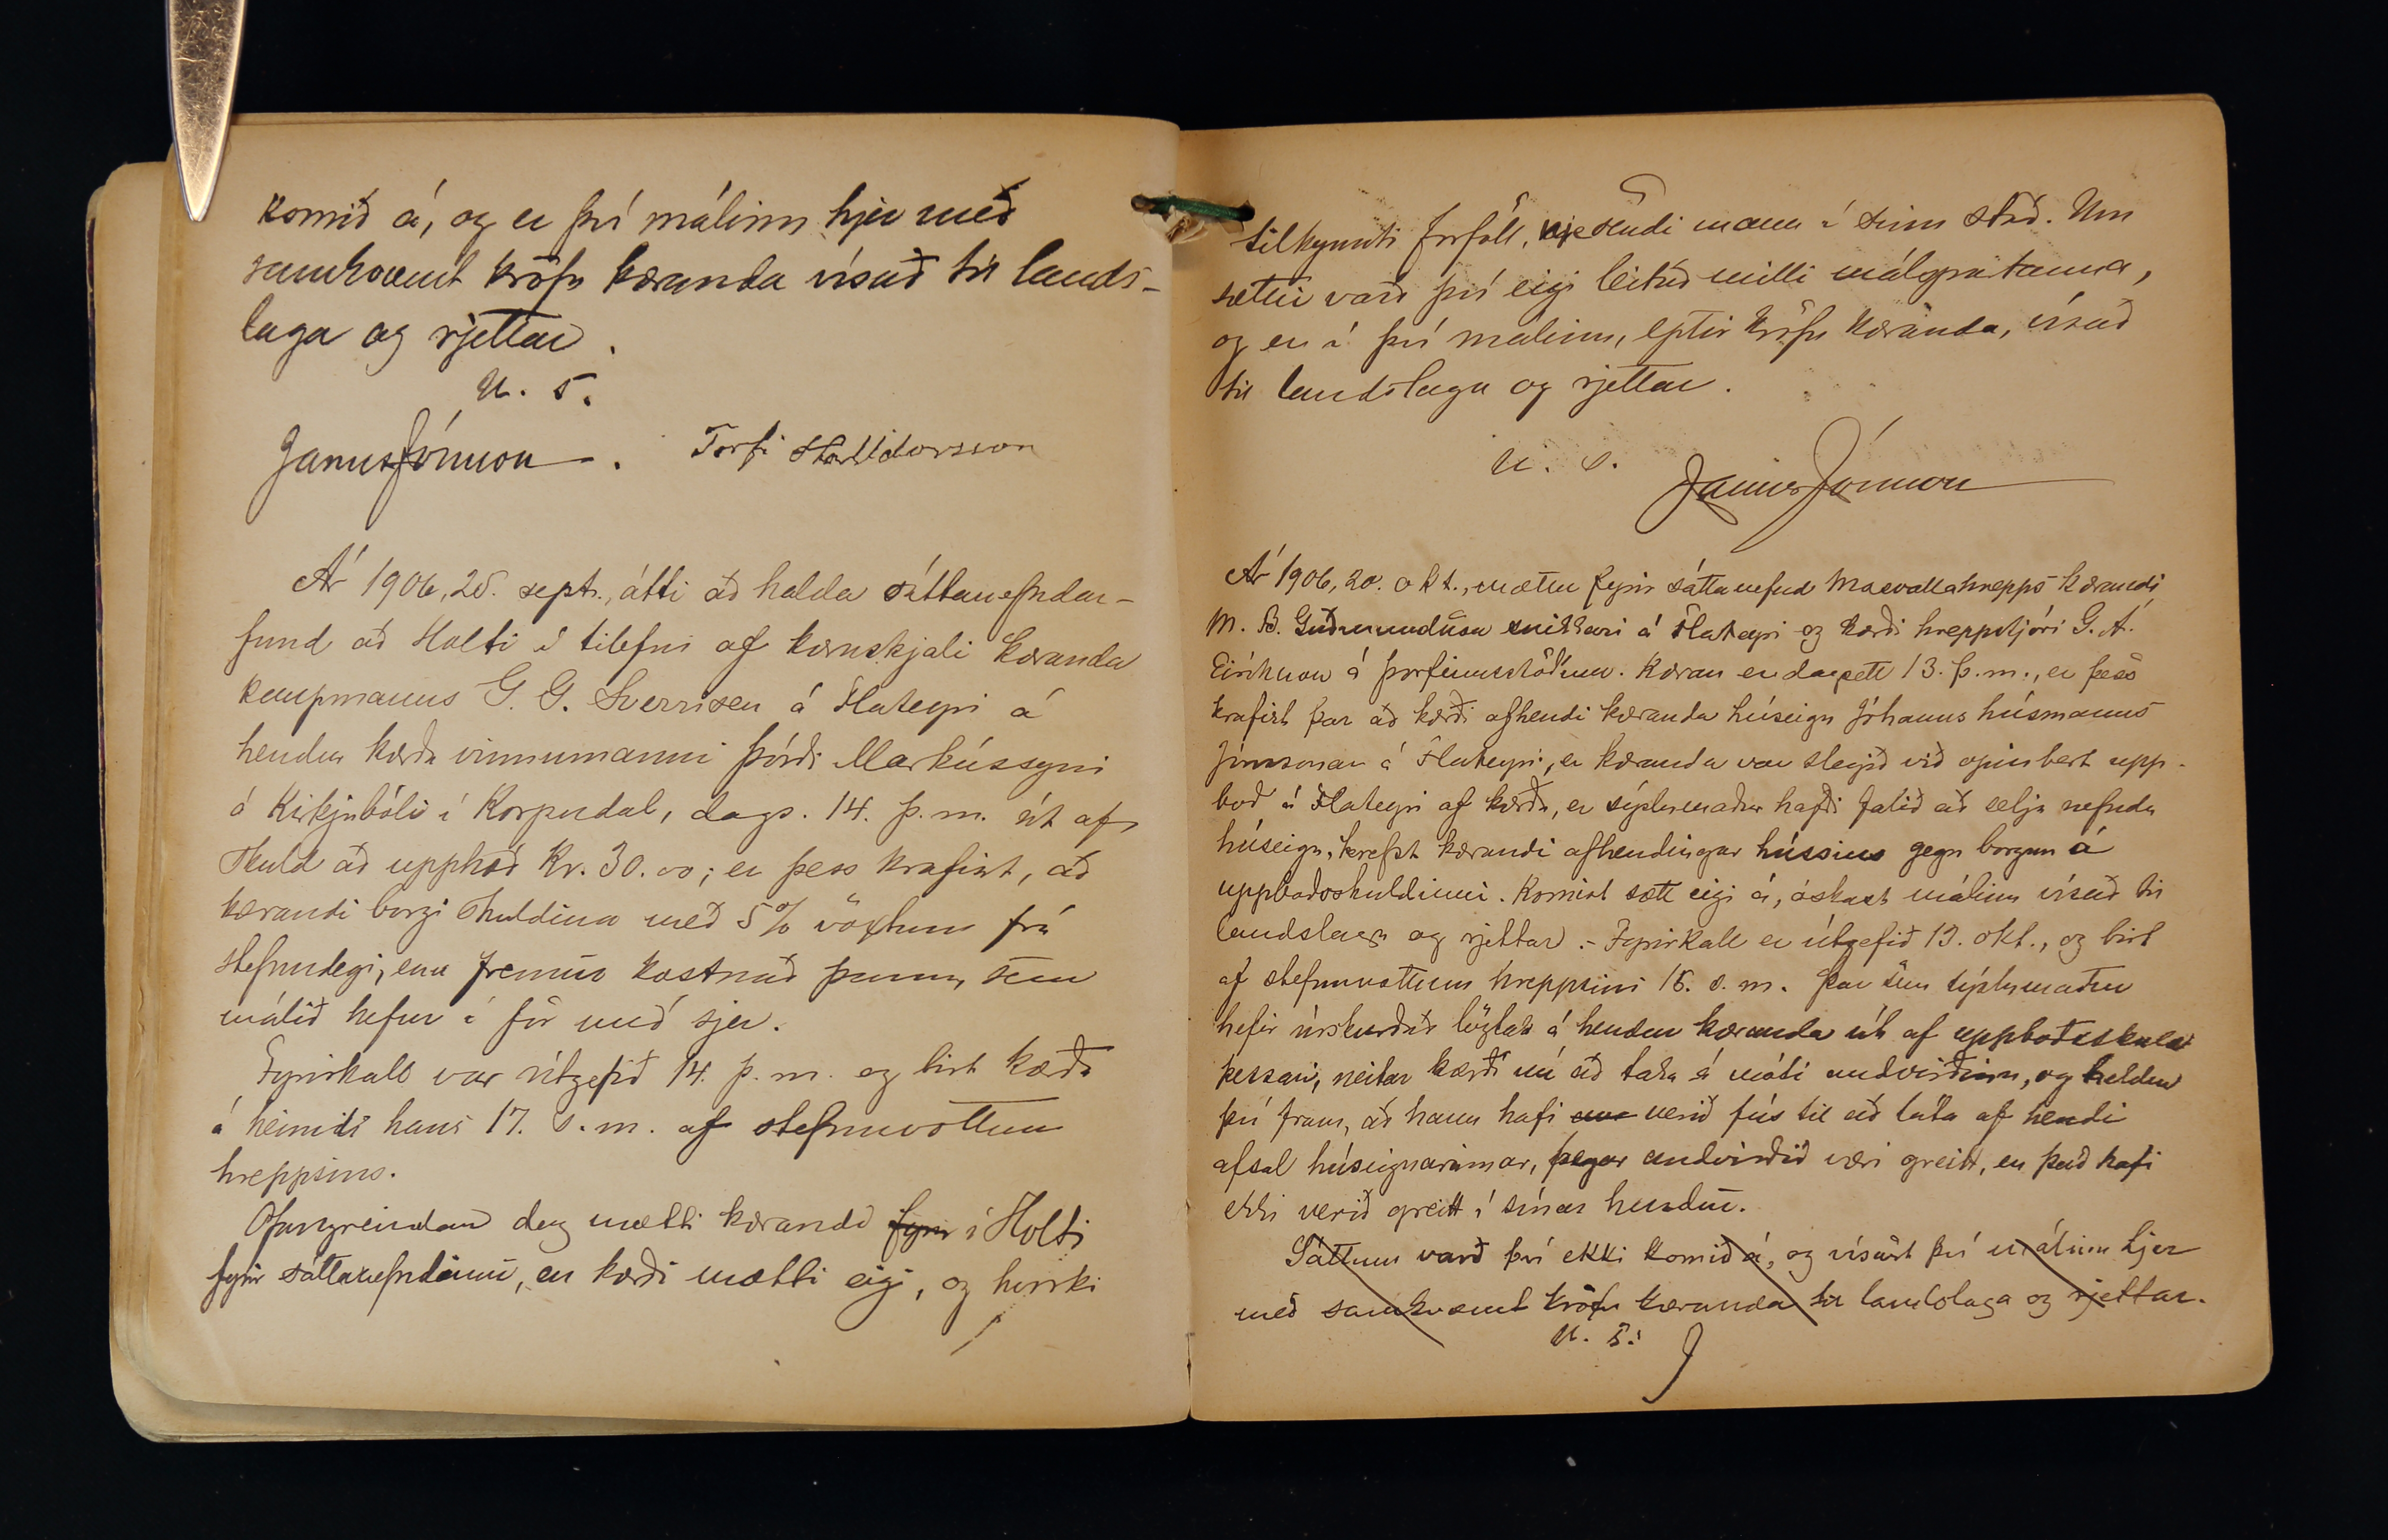 komið á, og er því málinu hjer með
samkvæmt kröfu kæranda vísað til lands-
laga og rjettar.
U. S.
Janus Jónsson. Torfi Halldorsson
Ár 1906, 25. sept., átti að halda sáttanefndar-
fund að Holti í tilefni af kæruskjali kæranda
kaupmanns G. G. Sverrisen á Flateyri á
hendur kærða vinnumanni Þórði Markússyni
á Kirkjubóli í Korpudal, dags. 14. þ. m. út af
skuld að upphæð Kr. 30.00; er þess krafist, að
kærandi borgi skuldina með 5% vöxtum frá
stefnudegi, enn fremur kostnað þann, sem
málið hefur í för með sjer.
Fyrirkall var útgefið 14. þ. m. og birt kærða
á heimili hans 17. s. m. af stefnuvottum
hreppsins.
Ofangreindan dag mætti kærandi fyrir í Holti
fyrir sáttanefndinni, en kærði mætti eigi, og hvorki
tilkynnti forföll, nje sendi mann í sinn stað. Um
sættir varð því eigi leitað milli málspartanna,
og er í því málinu, eptir kröfu kæranda, vísað
til landslaga og rjettar.
U. S. Janus Jónsson
Ár 1906, 20. okt., mættu fyrir sáttanefnd Mosvallahrepps kærandi
M. B. Guðmundsson snikkari á Flateyri og kærði hreppstjóri G. Á.
Eiríksson á Þorfinnsstöðum. Kæran er dagsett 13. þ. m., er þess
krafist þar að kærði afhendi kæranda húseign Jóhanns húsmanns
Jónssonar á Flateyri, er kæranda var slegið við opinbert upp-
boð á Flateyri af kærða, er sýslumaður hafði falið að selja nefnda
húseign, krefst kærandi afhendingar hússins gegn borgun á
uppboðsskuldinni. Komist sætt eigi á, óskast málinu vísað til
landslaga og rjettar. - Fyrirkall er útgefið 13. okt., og birt
af stefnuvottum hreppsins 15. s. m. Þar sem sýslumaður
hefir úrskurðað lögtak á hendur kæranda út af uppboðsskuld
þessari, neitar kærði nú að taka á móti andvirðinu, og heldur
því fram, að hann hafi verið fús til að láta af hendi
afsal húseignarinnar, þegar andvirðið væri greitt, en það hafi
ekki verið greitt í sínar hendur.
Sáttum varð því ekki komið á, og vísast því málinu hjer
með samkvæmt kröfu kæranda til landslaga og rjettar.
U. S.
J